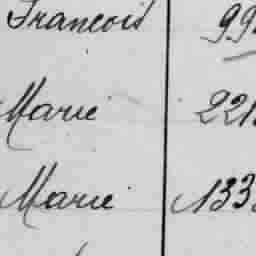 Francois 99
Marie 221
Marie 133